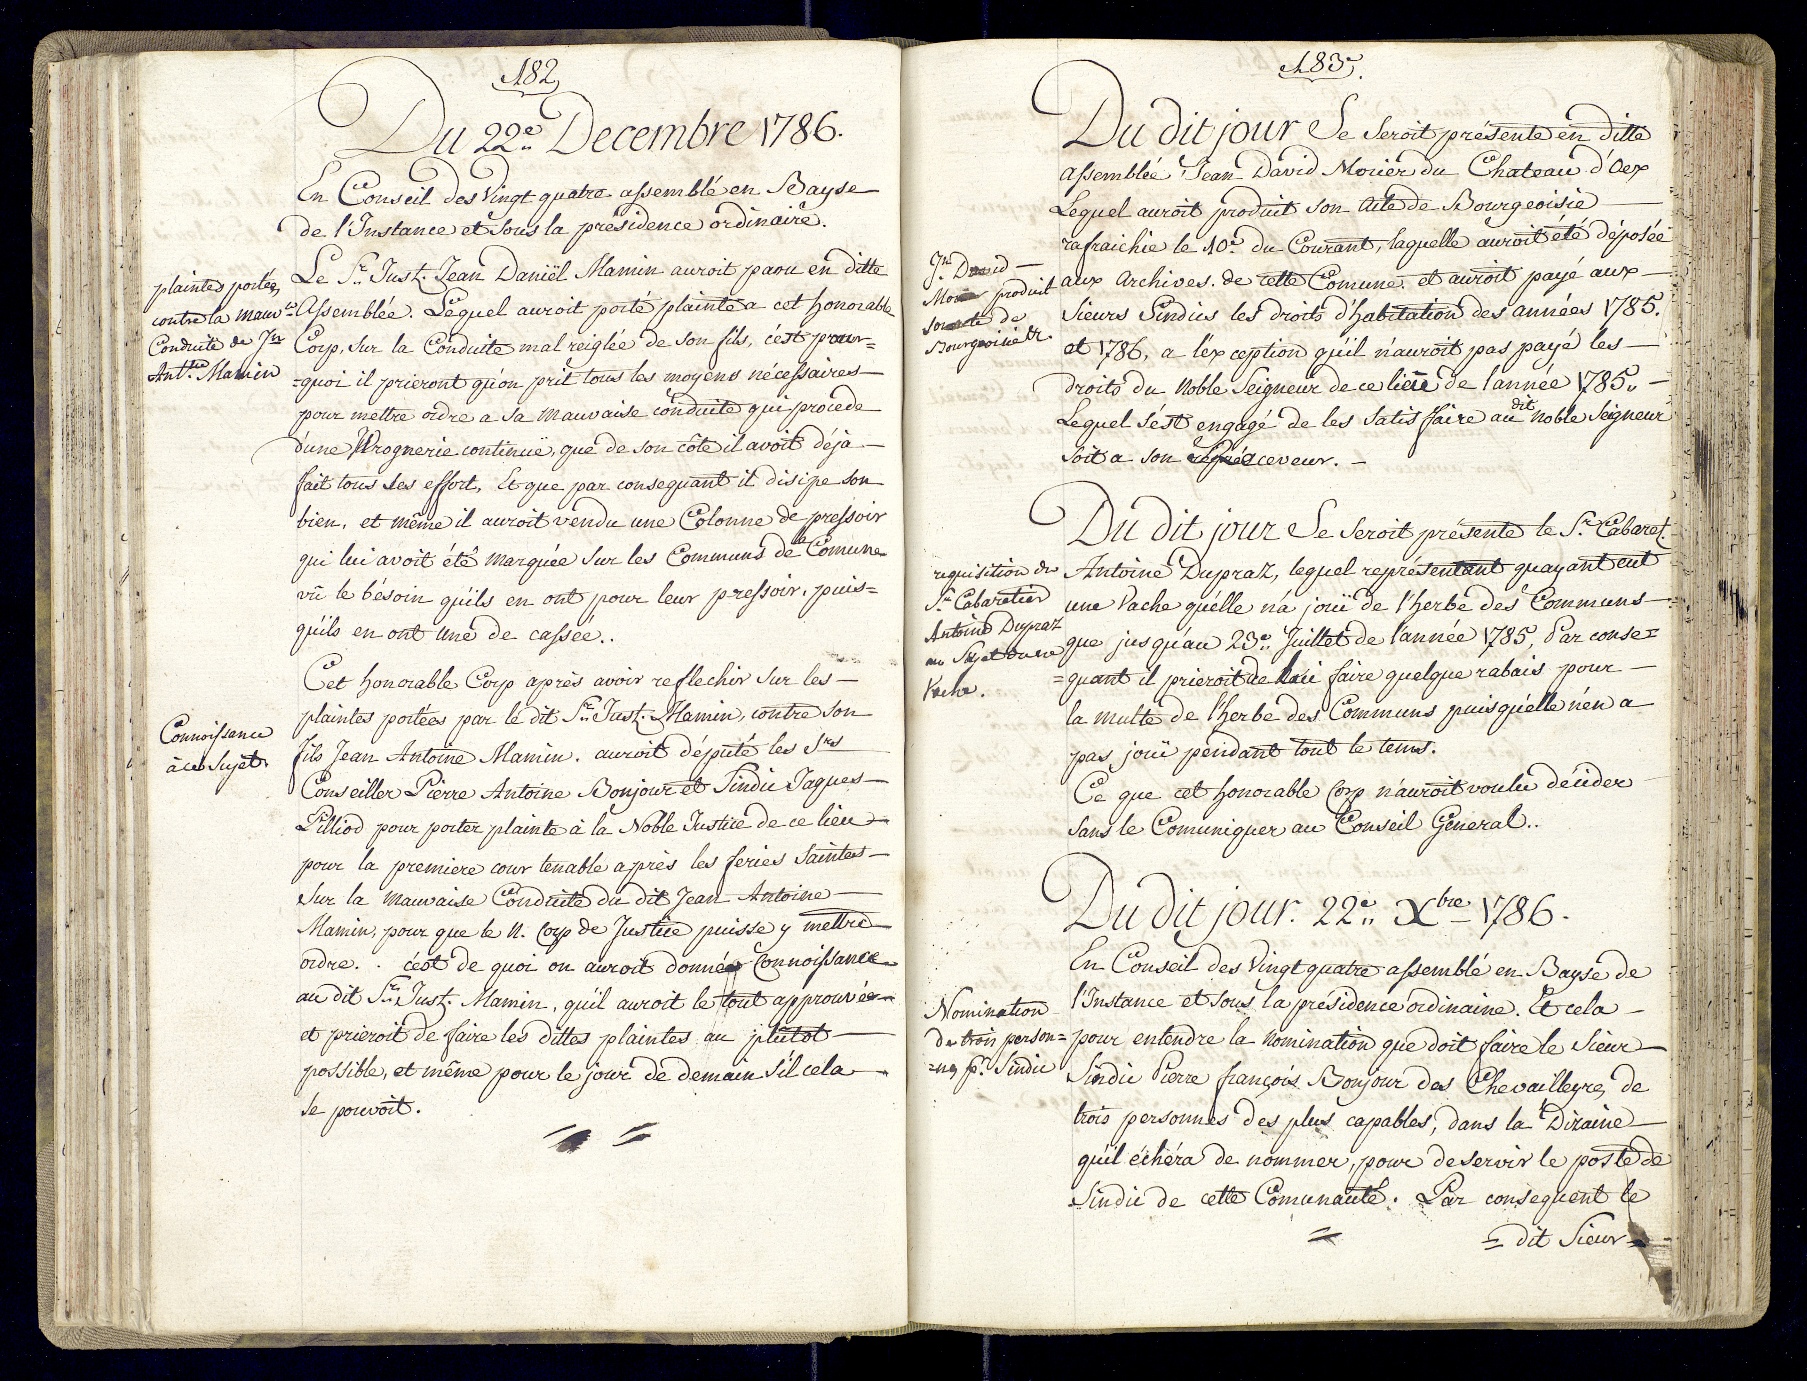 182
Du 22e Decembre 1786.
En Conseil des Vingt quatre assemblé en Bayse
de l'Instance et Sous la présidence ordinaire.
plainted portée,
contre la mauv.se
Conduite de Jn
Ant.ne Mamin
Le Sr Just. Jean Daniël Mamin auroit parû en ditte
Assemblée. Lequel auroit porté plainte a cet honorable
Corp, sur la Conduite mal reiglée de son fils, c'est pour=
=quoi il prieront qu'on prit tous les moyens nécessaires
pour mettre ordre a sa mauvaise conduite qui procede
d'une Yvrognerie continuë, que de son côte il avoit déja
fait tous ses effort, Et que par consequant il disipe son
bien, et même il auroit vendu une Colonne de pressoir
qui lui avoit été marquée sur les Communs de la Comune
vû le bésoin qu'ils en ont pour leur pressoir, puis=
qu'ils en ont une de cassée..
Connoissance
à ce Sujet
Cet honorable Corp après avoir reflechir sur les
plaintes portées par le dit Sr Just. Mamin, contre son
fils Jean Antoine Mamin. auroit député les Srs
Conseiller Pierre Antoine Bonjour et Sindic Jaques
Pilliod pour porter plainte à la Noble Justice de ce lieu
pour la premiere cour tenable après les feries saintes
sur la mauvaise Conduite du dit Jean Antoine
Mamin, pour que le N. Corp de Justice puisse y mettre
ordre. . c'est de quoi on auroit donné Connoissance
au dit Sr Just. Mamin, qu'il auroit le tout approuvée
et prieroit de faire les dittes plaintes au plûtot
possible, et même pour le jour de demain s'il cela
se pouvoit.
183.
Du dit jour Se Seroit présente en ditte
assemblée Jean David Morier du Chateau d'Oex
Lequel auroit produit son Acte de Bourgeoisie
rafraichie le 10e du Courant, laquelle auroit été déposée
Jn David
Morier produit
son acte de
Bourgeoisie &.
aux Archives. de cette Comune. et auroit payé aux
Sieurs Sindics les droits d'habitation des années 1785.
et 1786, a l'exception qu'il n'auroit pas payé les
droits du Noble Seigneur de ce lieu de l'année 1785.
Lequel s'est engagé de les satisfaire au dit noble Seigneur
soit a son receveur.
Du dit jour Se Seroit présente le Sr Cabaret.
requisition du
Sr Cabaretier
Antoine Dupraz
au Sujet d'une
Vache.
Antoine Dupraz, lequel représentant quayant eut
une Vache qu'elle n'a joui de l'herbe des Communs
que jusqu'au 23e Juillet de l'année 1785, Par conse=
=quant il prieroit de lui faire quelque rabais pour
la multe de l'herbe des Communs puis qu'elle n'en a
pas joui pendant tout le tems.
Ce que cet honorable Corp n'auroit voulu décider
sans le Comuniquer au Conseil General..
Du dit jour. 22e Xbre 1786.
En Conseil des Vingt quatre assemblé en Bayse de
l'Instance et Sous la présidence ordinaire. Et cela
Nomination
de trois person=
=nes pr. Sindic
pour entendre la nomination que doit faire le Sieur
Sindic Pierre françois Bonjour des Chevailleyres, de
trois personnes des plus capables, dans la Dizaine
qu'il échéra de nommer, pour deservir le poste de
Sindic de cette Comunauté. Par consequent le
= dit Sieur =